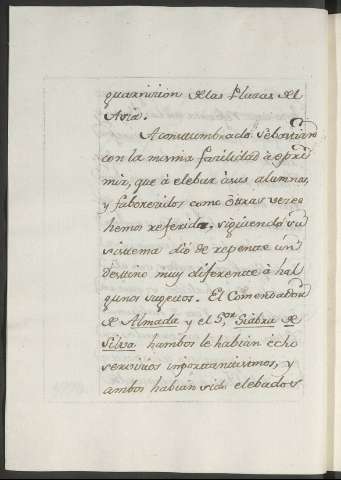 guarnicion de las Plazas del
Asia.
Acostumbrado Sebastian
con la misma facilidad à opri
mir, que à elebar à sus alumnos,
y faborecidos como otras veces
hemos referido, siguiendo su
sistema dió de repente un
destino muy diferente à hal
gunos sugetos. El Comendador
de Almada y el S.or Siabra de
Silva hambos le habian echo
servicios inportantisimos, y
ambos habian sido elebados